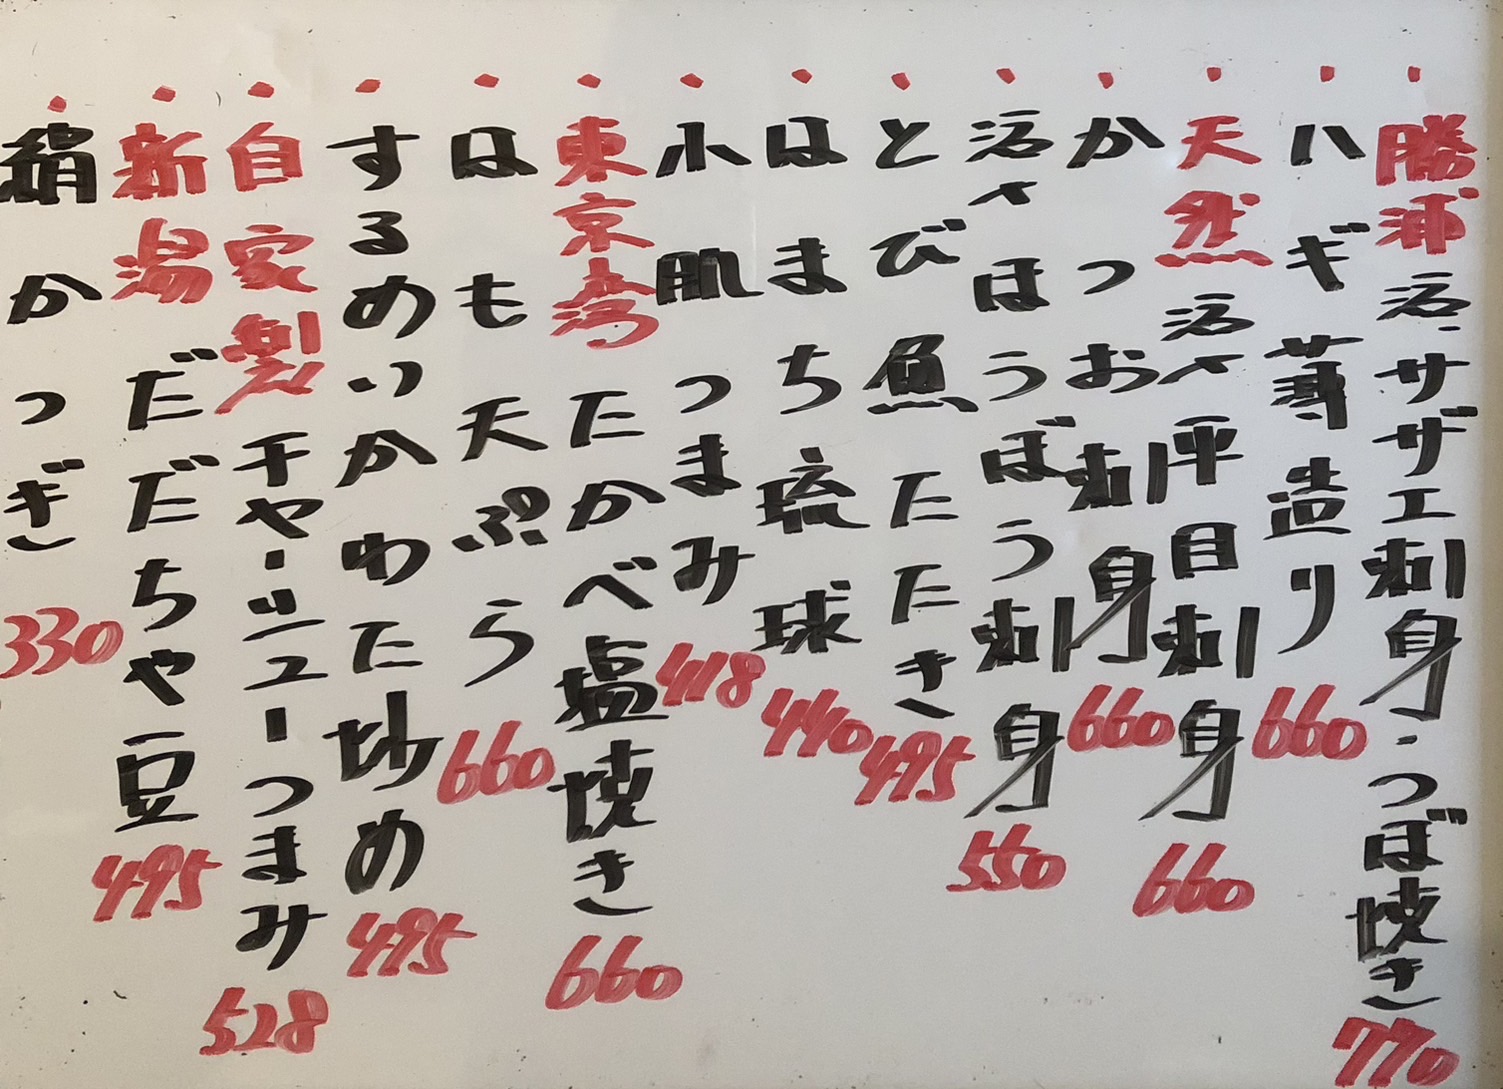 勝浦活サザエ刺身・つぼ焼き770
ハギ薄造り660
天然活〆平目刺身660
かつお刺身660
活〆ほうぼう刺身550
とび魚たたき495
はまち琉球440
小肌つまみ418
東京湾たかべ塩焼き660
はも天ぷら660
するめいかわた炒め495
自家製チャーシューつまみ528
新潟だだちゃ豆495
絹かつぎ330